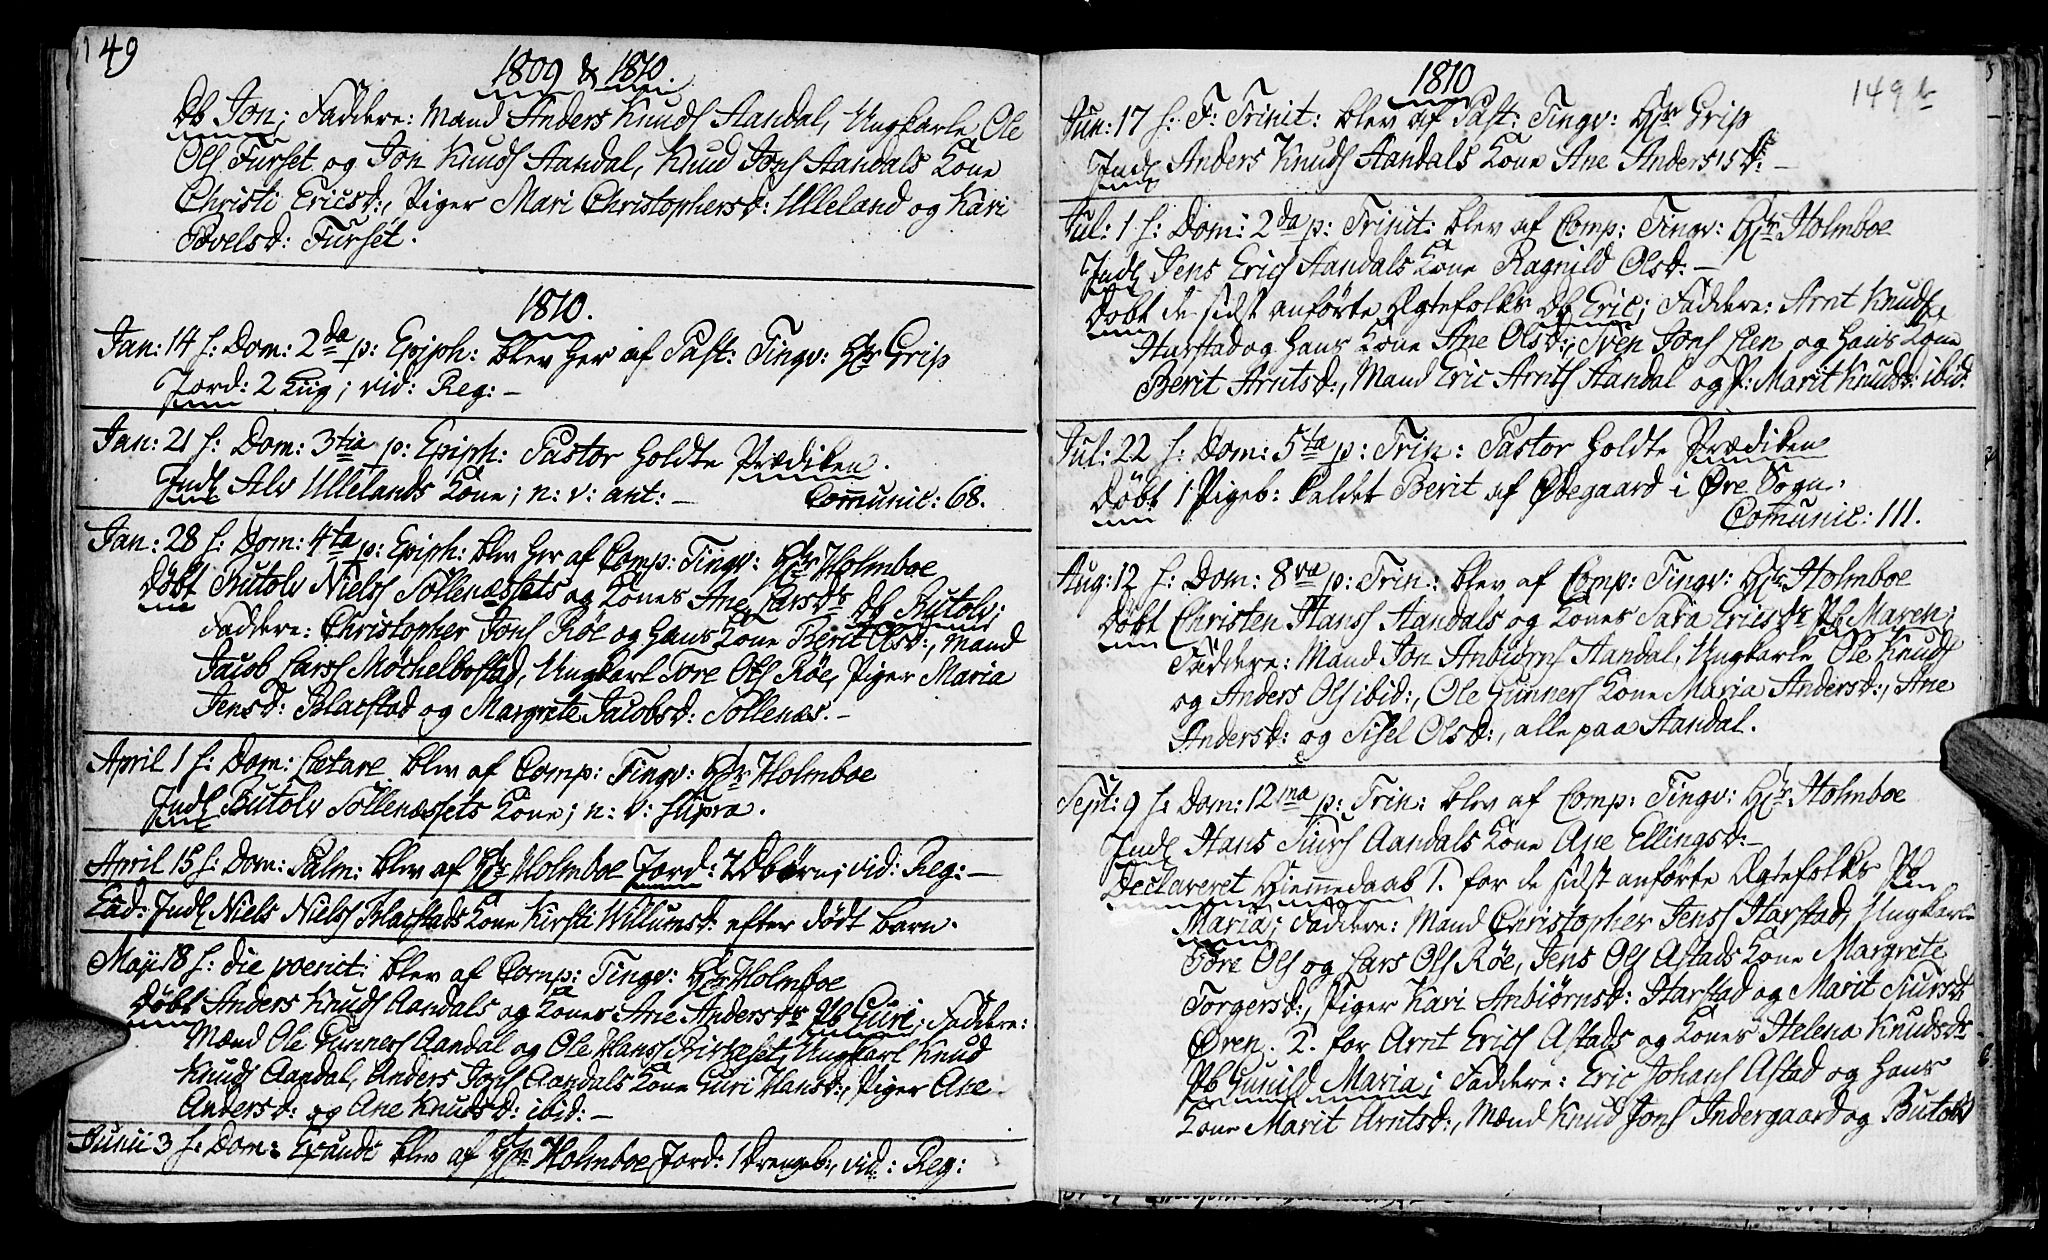 149
1809 & 1810.
Db Jon; Faddere: Mand Anders Knuds Aandal, Ungkarle Ole
Ols Furset og Jon Knuds Aandal, Knud Jons Aandals Kone
Christi Ericsd:, Piger Mari Christophersd: Ulleland og Kari
Povelsd: Furset.
1810.
Jan: 14 h: Dom: 2da p: Epiph: blev her af Past: Tingv: Hr Grip
Jord: 2 Liig; vid: Reg: –
Jan: 21 h: Dom: 3tia p: Epiph: Pastor holdte Prædiken.
Indl Alv Ullelands Kone; n: v: ant: –
Comunic: 68.
Jan: 28 h: Dom: 4ta p: Epiph: blev her af Comp: Tingv: Hr Holmboe
Døbt Butolv Niels Søllenæssets og Kones Ane Larsdr Db Butolv;
Faddere: Christopher Jons Røe og hans Kone Berit Olsd:, Mand
Jacob Lars Møchelbostad, Ungkarl Tore Ols Røe, Piger Maria
Jensd: Blaestad og Margrete Jacobsd: Søllenæs. –
April 1 h: Dom: Lætare blev af Comp: Tingv: Hr Holmboe
Indl Butolv Søllenæssets Kone; n: v: supra.
April 15 h: Dom: Palm: blev af Hr Holmboe Jord: 2 Dbørn; vid: Reg: –
Ead: Indl Niels Niels Blaestads Kone Kirsti Willumsd: efter dødt barn.
Maji 18 h: die poenit: blev af Comp: Tingv: Hr Holmboe
Døbt Anders Knuds Aandals og Kones Ane Andersdr Pb Guri; Faddere:
Mænd Ole Gunners Aandal og Ole Hans Birkeset, Ungkarl Knud
Knuds Aandal, Anders Jons Aandals Kone Guri Hansd:, Piger Ane
Andersd: og Ane Knudsd: ibid: –
Junii 3 h: Dom: Exaudi blev af Hr Holmboe Jord: 1 Drengeb:, vid: Reg:
1810
149 b
Jun: 17 h: F: Trinit: blev af Past: Tingv: Hr Grip
Indl Anders Knuds Aandals Kone Ane Andersd: –
Jul: 1 h: Dom: 2da p: Trinit: blev af Comp: Tingv: Hr Holmboe
Indl Jens Erics Aandals Kone Ragnild Olsd: –
Døbt de sidst anførte Ægtefolks Db Eric; Faddere: Arnt Knuds
Harstad og hans Kone Ane Olsd:, Sven Jons Lien og hans Kone
Berit Arntsd:, Mand Eric Arnts Aandal og P: Marit Knudsd: ibid:
Jul: 22 h: Dom: 5ta p: Trin: Pastor holdte Prædiken
Døbt 1 Pigeb: kaldet Berit af Ødegaard i Øre Sogn.
Comunic: 111.
Aug: 12 h: Dom: 8va p: Trin: blev af Comp: Tingv: Hr Holmboe
Døbt Christen Hans Aandals og Kones Sara Ericsdr Pb Maren;
Faddere: Mand Jon Anbiørns Aandal, Ungkarle Ole Knuds
og Anders Ols ibid:, Ole Gunners Kone Maria Andersd:, Ane
Andersd: og Sisel Olsd:, alle paa Aandal.
Sept: 9 h: Dom: 12ma p: Trin: blev af Comp: Tingv: Hr Holmboe
Indl Hans Siurs Aandals Kone Ane Ellingsd: –
Declareret Hiemmedaab 1. for de sidst anførte Ægtefolks Pb
Maria; Faddere: Mand Christopher Jens Harstad, Ungkarle
Tore Ols og Lars Ols Røe, Jens Ols Astads Kone Margrete
Torgersd:, Piger Kari Anbiørnsd: Harstad og Marit Siursdr
Øren. 2. for Arnt Erics Astads og Kones Helena Knudsdr
Pb Gunild Maria; Faddere: Eric Johans Astad og hans
Kone Marit Arntsd:, Mænd Knud Jons Indergaard og Butolv